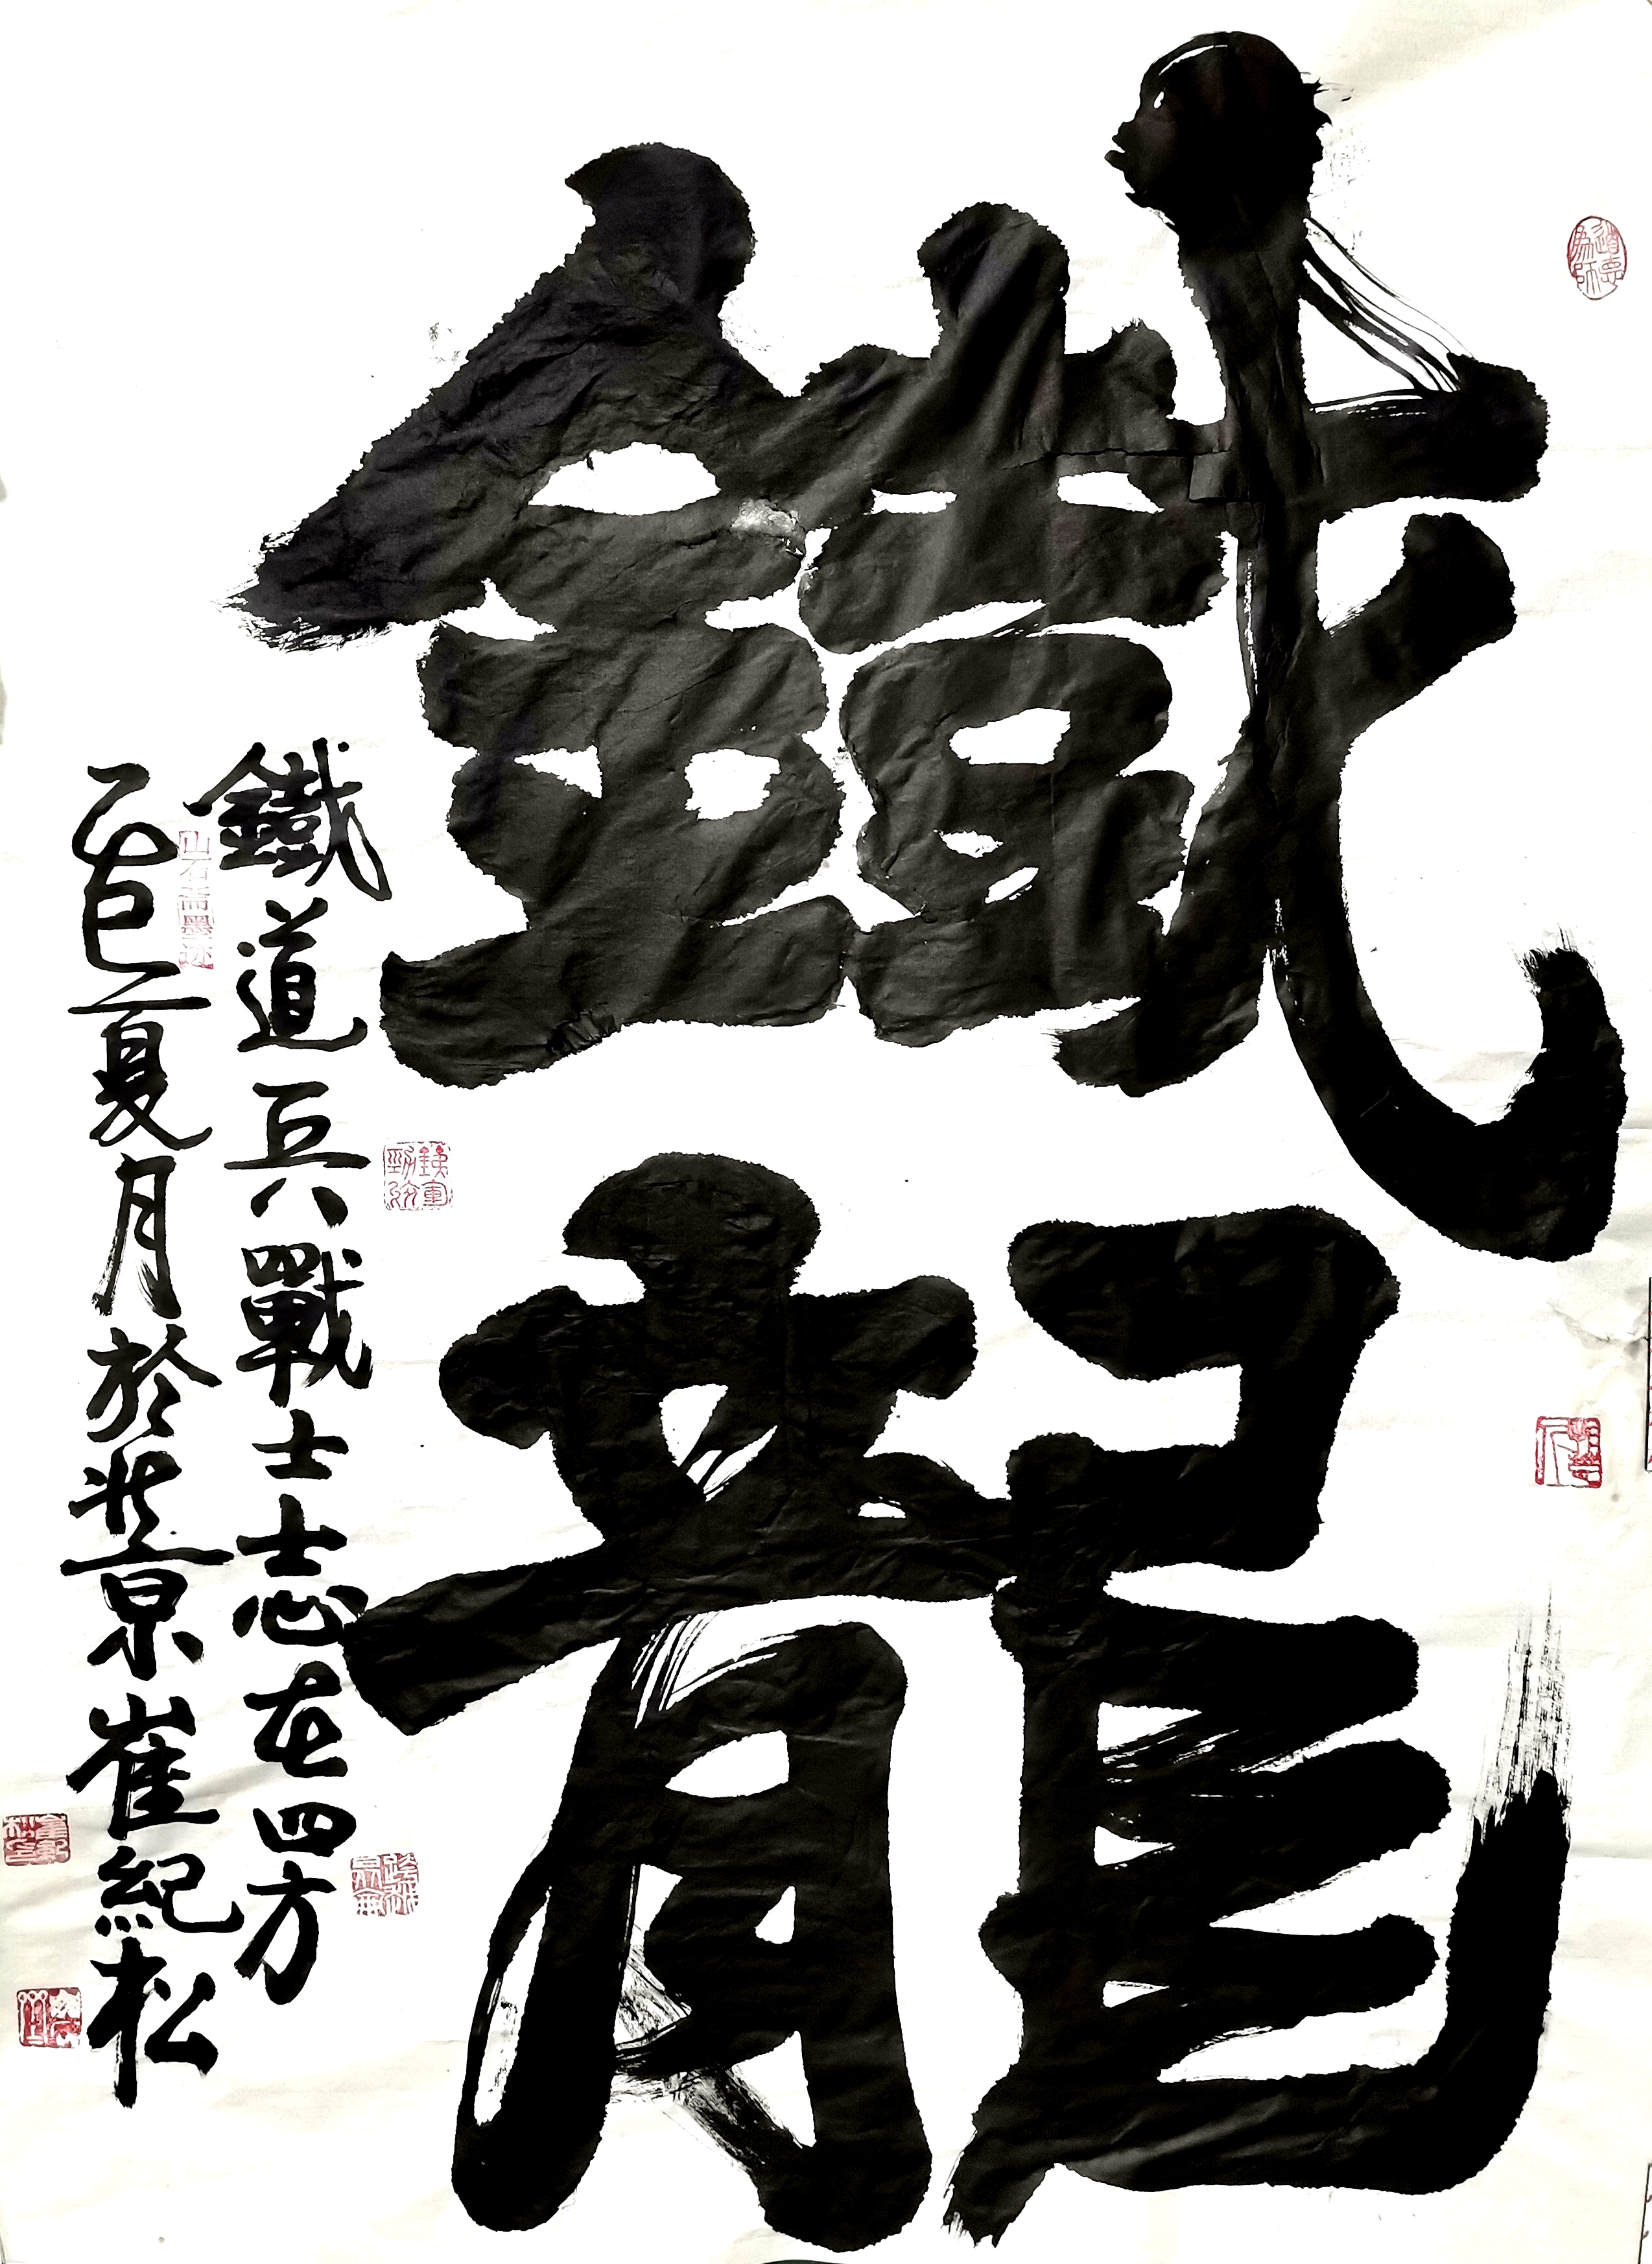 鐵龍
鐵道兵戰士志在四方
乙巳夏月於北京崔紀松
道德為師